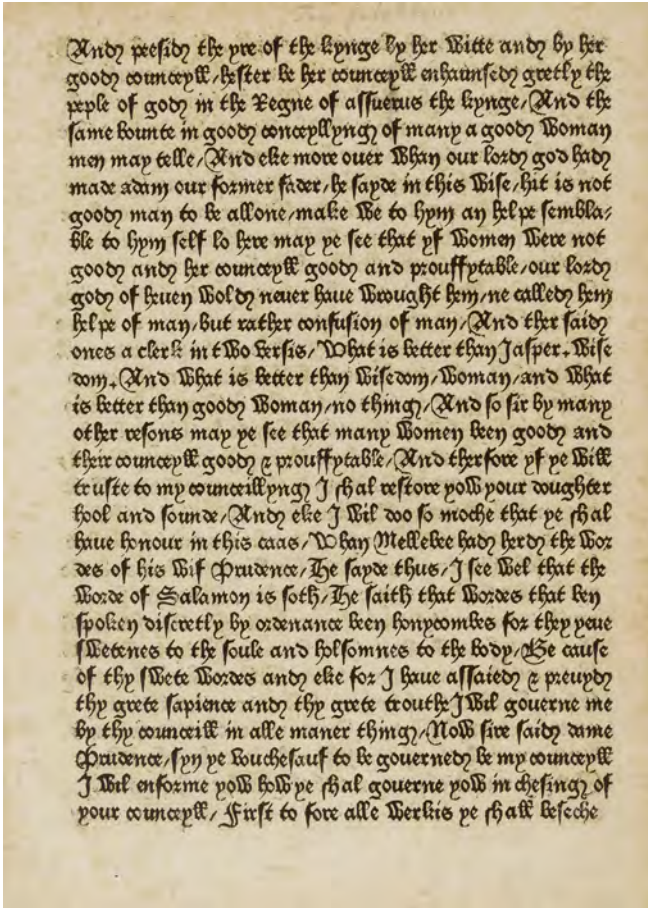 And pesid the yre of the kynge by her witte and by her
good counceyll/hester be her counceyll enhaunsed gretly the
peple of god in the Regne of assuerus the kynge/And the
same bounte in good conceyllyng of many a good woman
men may telle/And eke more ouer whan our lord god had
made adam our former fader/he sayde in this wise/hit is not
good man to be allone/make we to hym an helpe sembla/
ble to hym self lo here may ye see that yf women were not
good and her counceyll good and prouffytable/our lord
god of heuen wold neuer haue wrought hem/ne called hem
helpe of man/but rather confusion of man/And ther said
ones a clerk in two versis/What is better than Jasper. wise
dom. And what is better than wisedom/woman/and what
is better than good woman/no thing/And so sir by many
other resons may ye see that many women been good and
their counceyll good & prouffytable/And therfore yf ye will
truste to my counceillyng I shal restore yow your doughter
hool and sounde/And eke I wil doo so moche that ye shal
haue honour in this caas/Whan Mellebee had herd the wor
des of his wif Prudence/He sayde thus/I see wel that the
worde of Salamon is soth/He saith that wordes that ben
spoken discretly by ordenance been honycombes for they yeue
swetenes to the soule and holsomnes to the body/Be cause
of thy swete wordes and eke for I haue assaied & preuyd
thy grete sapience and thy grete trouthe I wil gouerne me
by thy counceill in alle maner thing/Now sire said dame
Prudence/syn ye vouchesauf to be gouerned be my counceyll
I wil enforme yow how ye shal gouerne yow in chesing of
your counceyll/First to fore alle werkis ye shall beseche